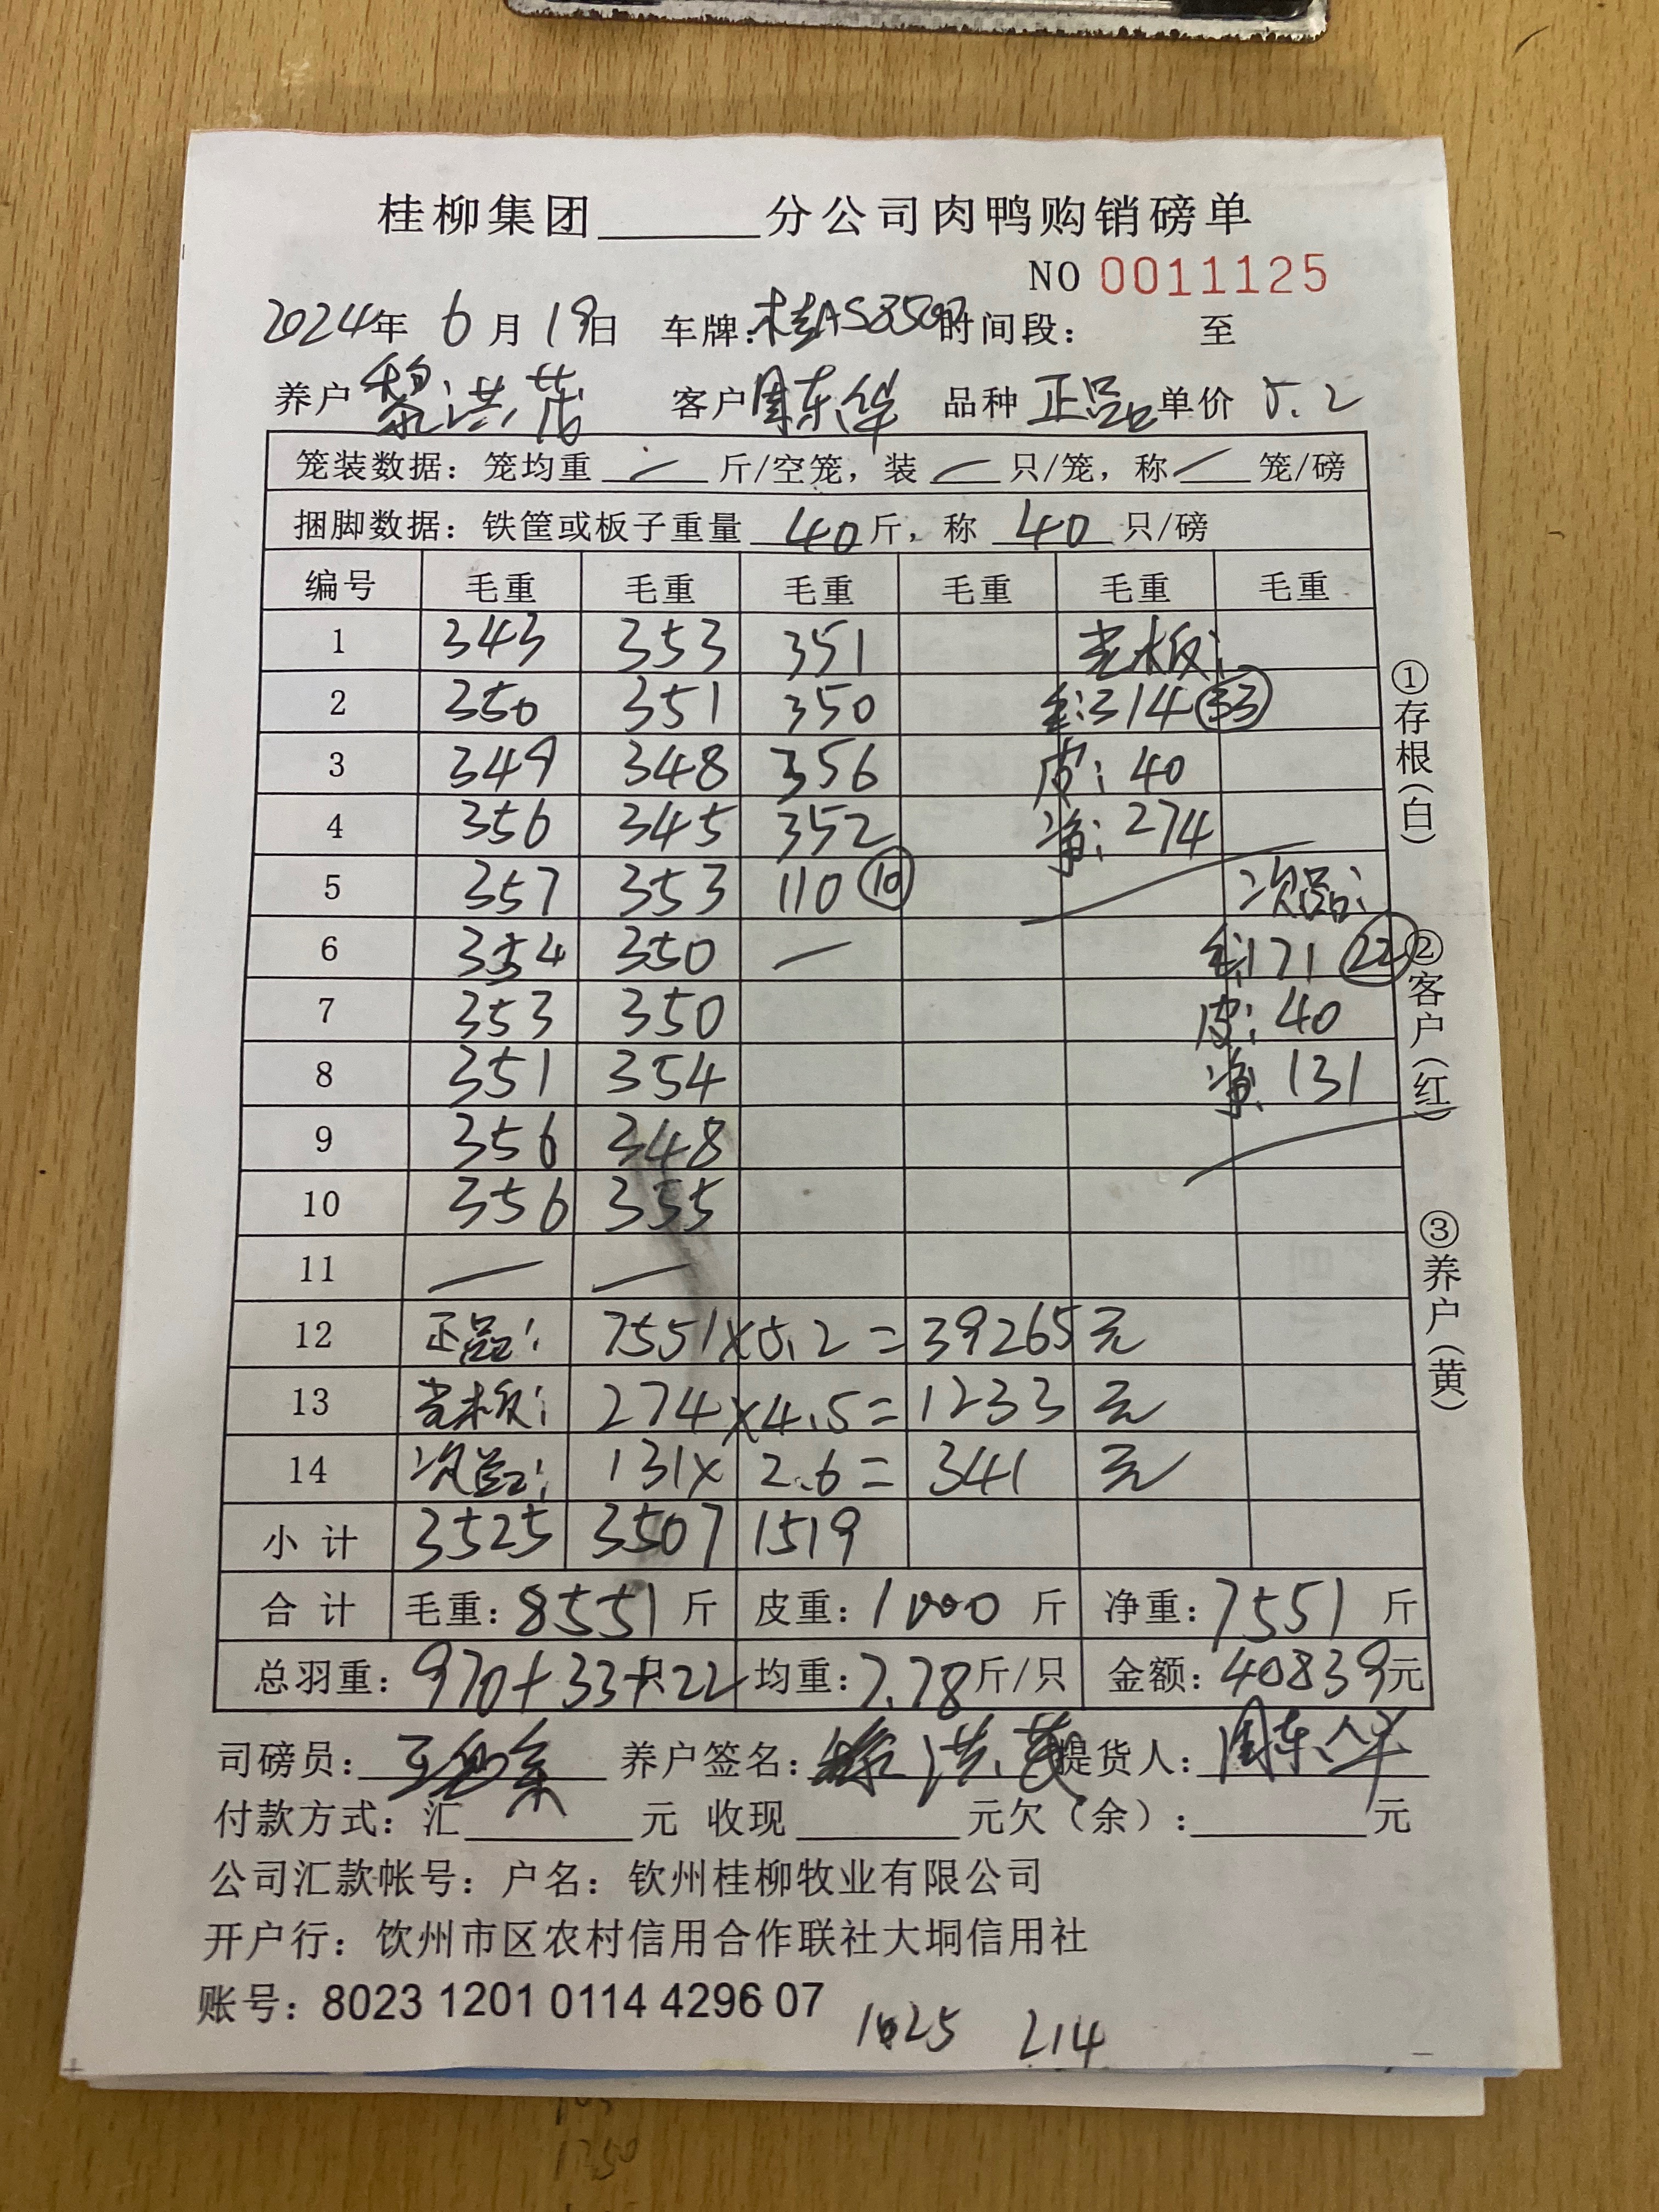 桂柳集团______分公司肉鸭购销磅单
NO 0011125
2024年 6月19日 车牌: 时间段: 至
养户 黎洪茂 客户 周东华 品种 正品 单价 5.2
笼装数据: 笼均重 — 斤/空笼, 装 — 只/笼, 称 — 笼/磅
捆脚数据: 铁筐或板子重量 40 斤, 称 40 只/磅
编号 毛重 毛重 毛重 毛重 毛重 毛重
1 343 353 351 光板:
2 350 351 350 毛:314 (33)
3 349 348 356 皮: 40
4 356 345 352 净: 274
5 357 353 110 (10) 次品:
6 354 350 — 毛:171 (22)
7 353 350 皮: 40
8 351 354 净: 131
9 356 348
10 356 355
11 — —
12 正品: 7551×5.2=39265元
13 光板: 274×4.5=1233元
14 次品: 131×2.6=341元
小计 3525 3507 1519
合计 毛重: 8551 斤 皮重: 1000 斤 净重: 7551 斤
总羽重: 970+33+22只 均重: 7.78斤/只 金额: 40839元
司磅员: 养户签名: 黎洪茂 提货人: 周东华
付款方式: 汇______元 收现______元欠(余):______元
公司汇款帐号: 户名: 钦州桂柳牧业有限公司
开户行: 饮州市区农村信用合作联社大垌信用社
账号: 8023 1201 0114 4296 07
1025 214
①存根(白)
②客户(红)
③养户(黄)